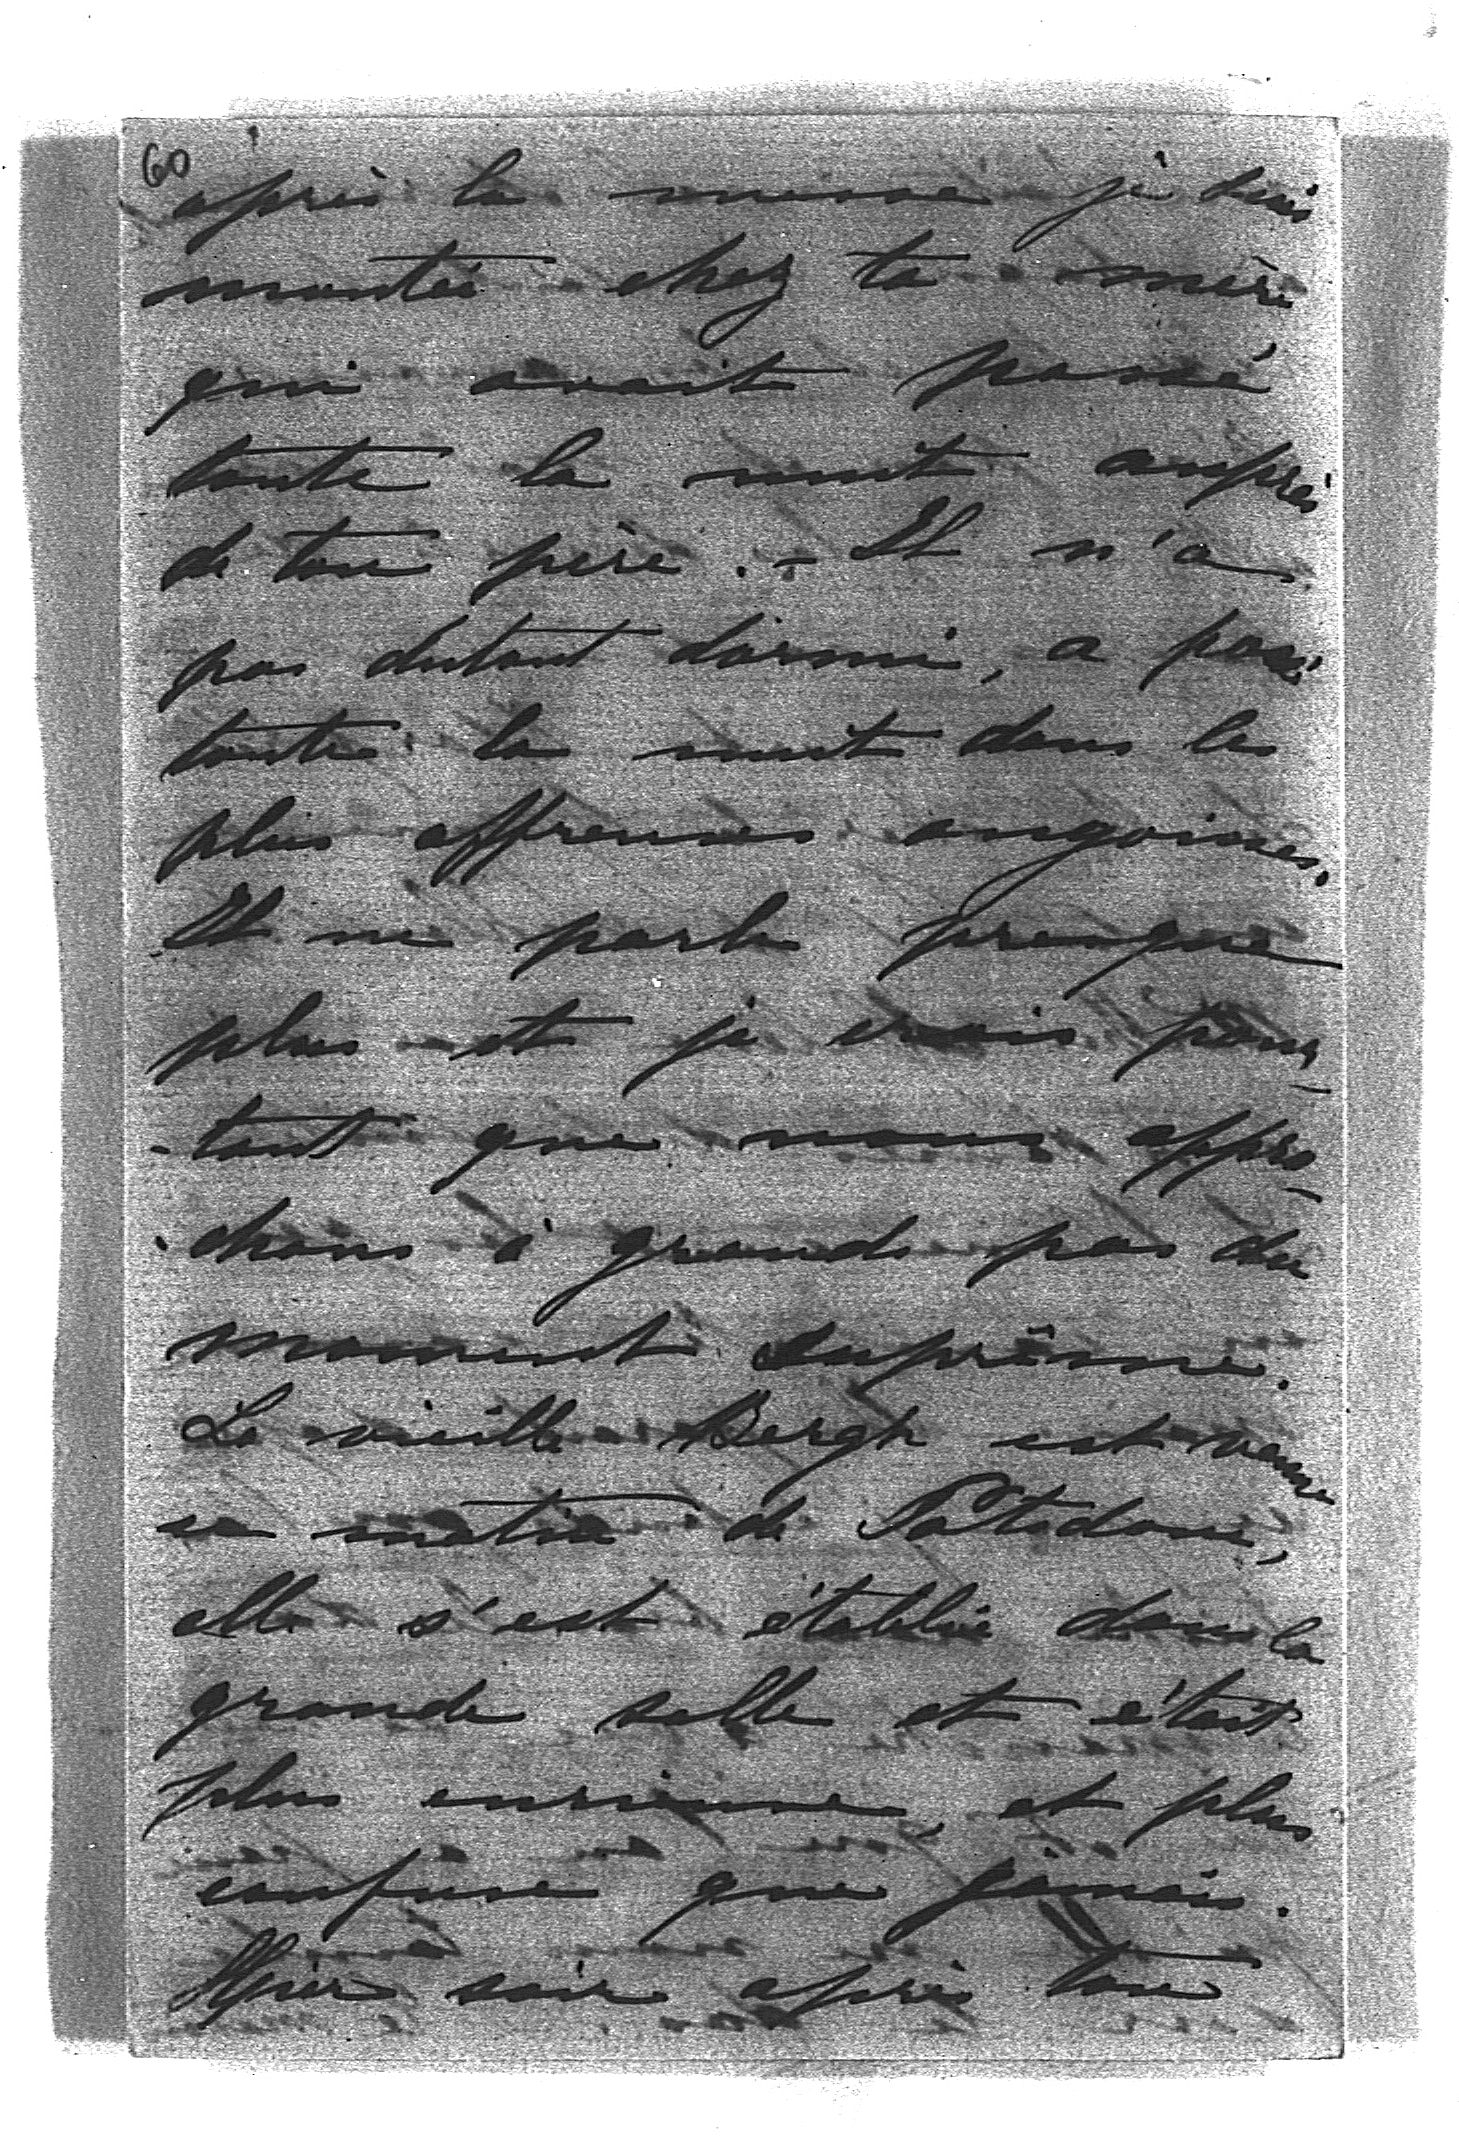 60
après la messe je suis
montée chez ta mère
qui avait passé
toute la nuit auprès
de ton père. - Il n'a
pas dutout dormi, a passé
toute la nuit dans les
plus affreuses angoisses.
Il ne parle presque
plus et je crois pour-
-tant que nous appro-
-chons à grands pas du
moment suprême.
La vieille Bergh est venue
ce matin de
elle s'est établie dans la
grande salle et était
plus curieuse et plus
confuse que jamais.
Hier soir après ton